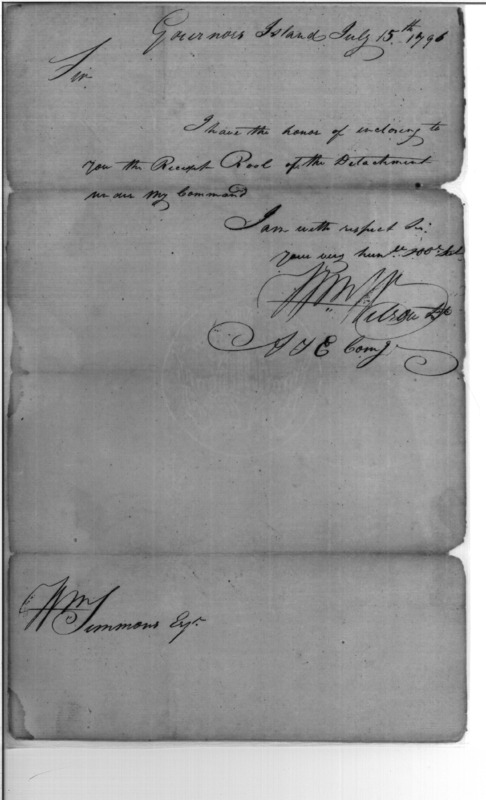 Governors Island July 15th 1796
Sir
I have the honor of inclosing to
you the Receipt Rool of the Detachment
under My Command
I am with respect Sir
your very humle
Wm Wilson Lt
A & E Comg
Wm Simmons Esqr